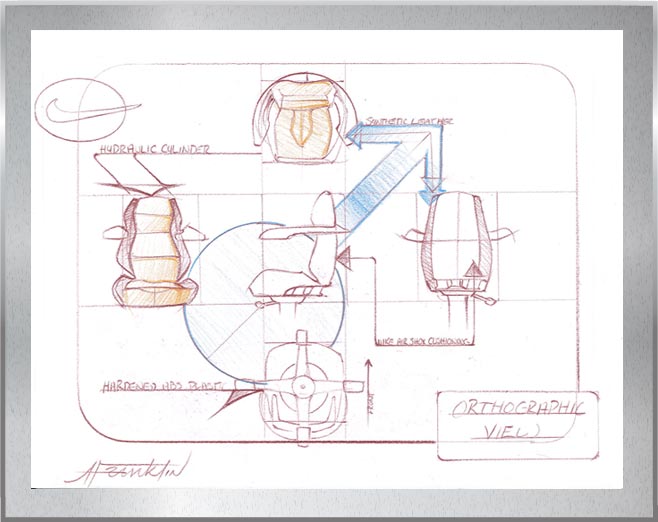 SYNTHETIC LEATHER
HYDRAULIC CYLINDER
NIKE AIR SHOX CUSHIONING
HARDENED ABS PLASTIC
FRONT
ORTHOGRAPHIC
VIEW
A Franklin